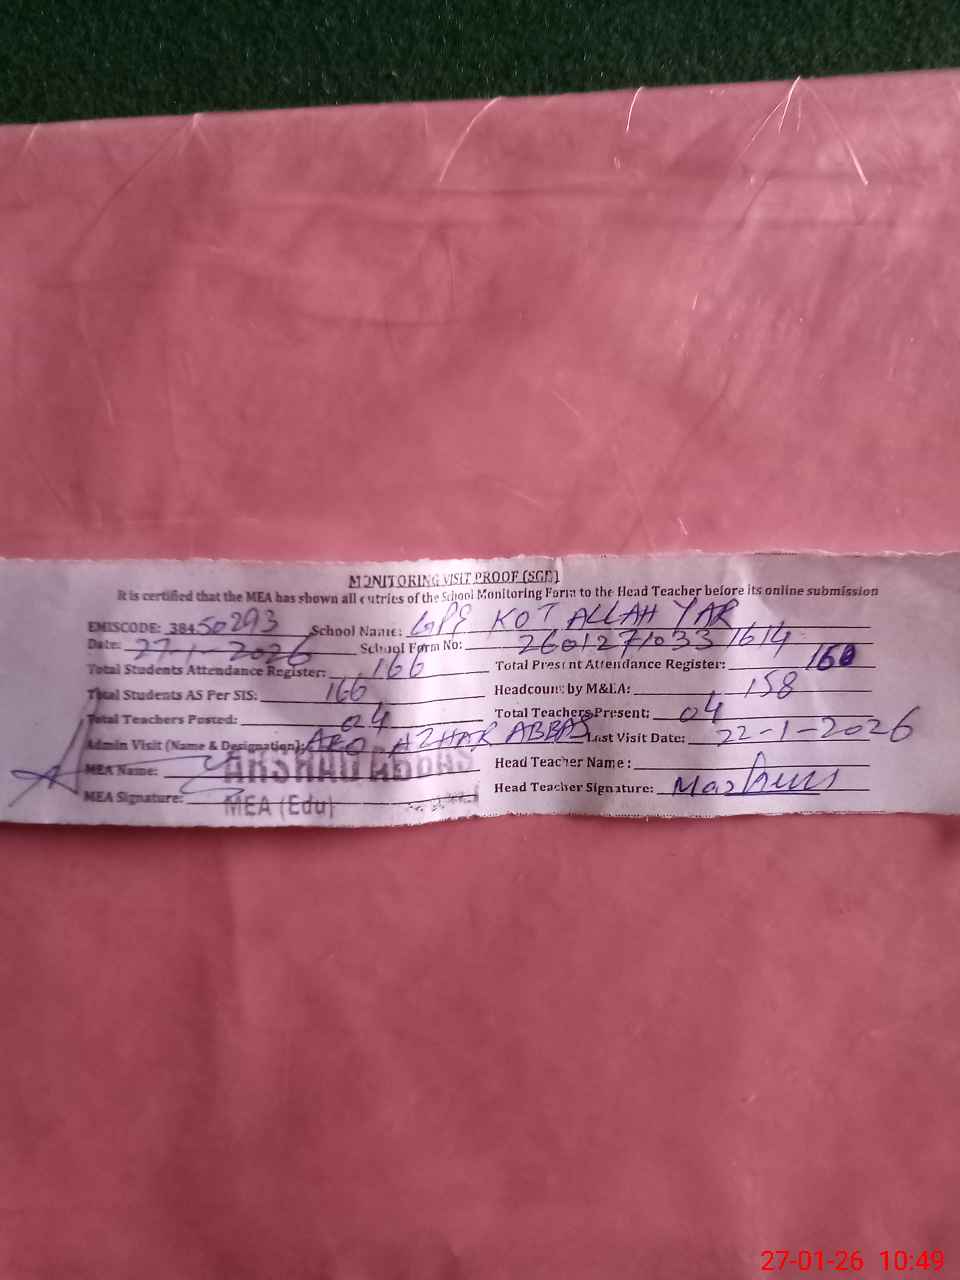 MONITORING VISIT PROOF (SGD)
It is certified that the MEA has shown all entries of the School Monitoring Form to the Head Teacher before its online submission
EMISCODE: 38450293 School Name: GPS KOT ALLAH YAR
Date: 27-1-2026 School Form No: 2601271033 1614
Total Students Attendance Register: 166 Total Present Attendance Register: 160
Total Students AS Per SIS: 166 Headcount by M&EA: 158
Total Teachers Posted: 04 Total Teachers Present: 04
Admin Visit (Name & Designation): AEO AZHAR ABBAS Last Visit Date: 22-1-2026
MEA Name: ARSHAD ABBAS Head Teacher Name:
MEA Signature: MEA (Edu) Head Teacher Signature:
27-01-26 10:49